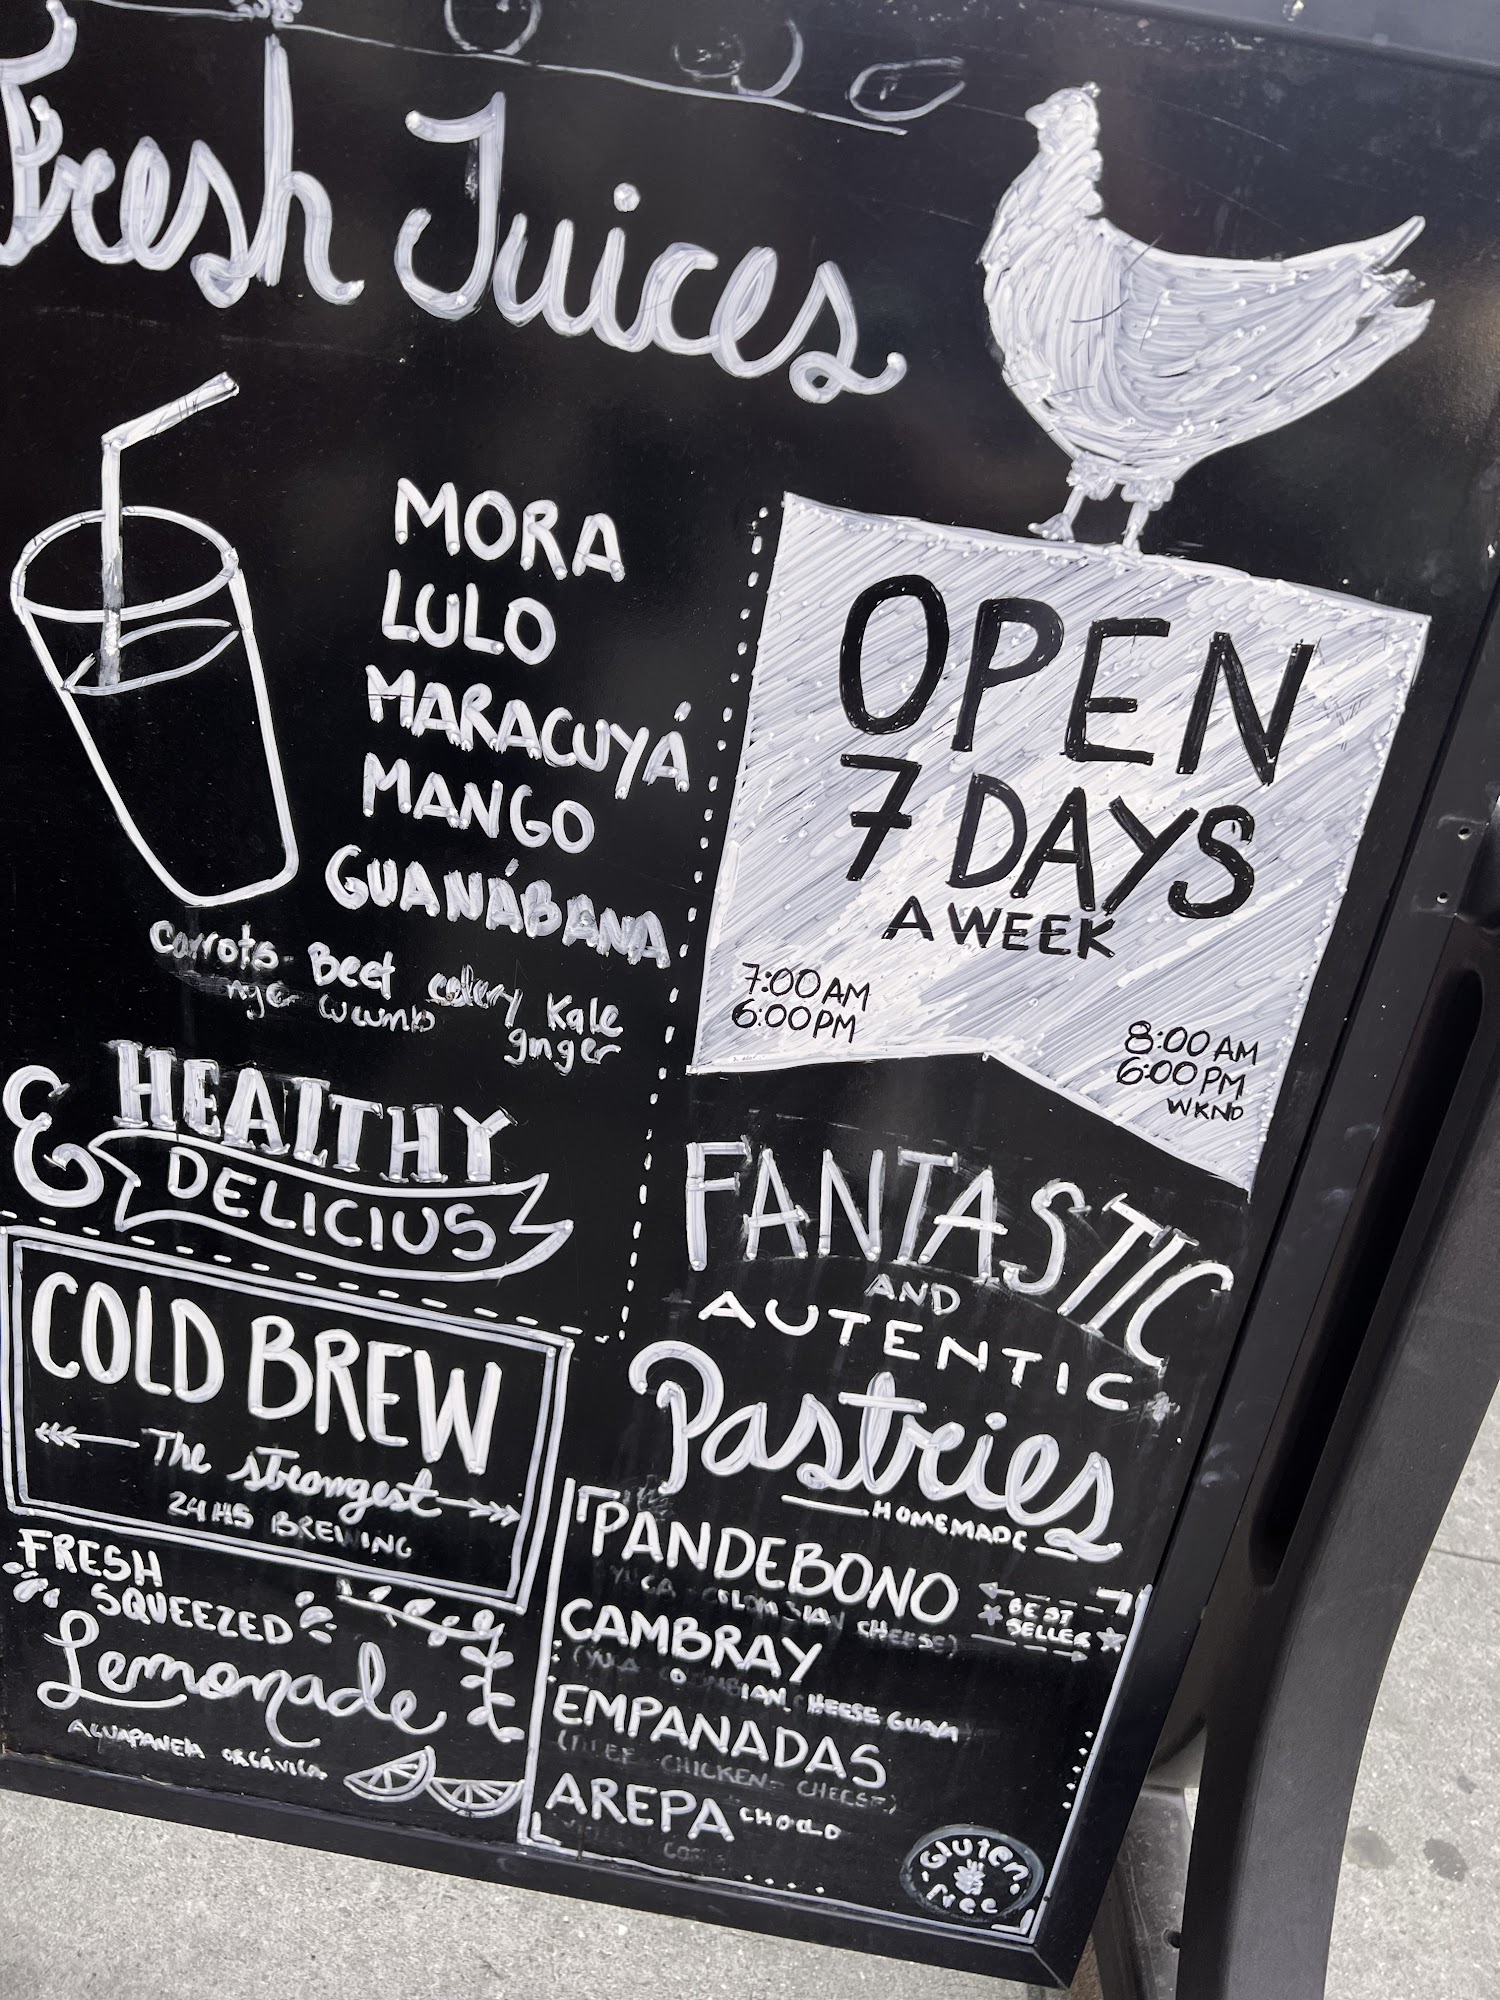 Fresh Juices
MORA
LULO
MARACUYÁ
MANGO
GUANÁBANA
Carrots Beet celery Kale
cucumb ginger
& HEALTHY
DELICIUS
COLD BREW
The strongest
24 HS BREWING
FRESH
SQUEEZED
Lemonade
AGUAPANELA ORGÁNICA
OPEN
7 DAYS
A WEEK
7:00 AM
6:00 PM
8:00 AM
6:00 PM
WKND
FANTASTIC
AND
AUTENTIC
Pastries
HOMEMADE
PANDEBONO
CHEESE)
BEST
SELLER
CAMBRAY
CHEESE
EMPANADAS
CHICKEN - CHEESE)
AREPA CHOCLO
Gluten
Free